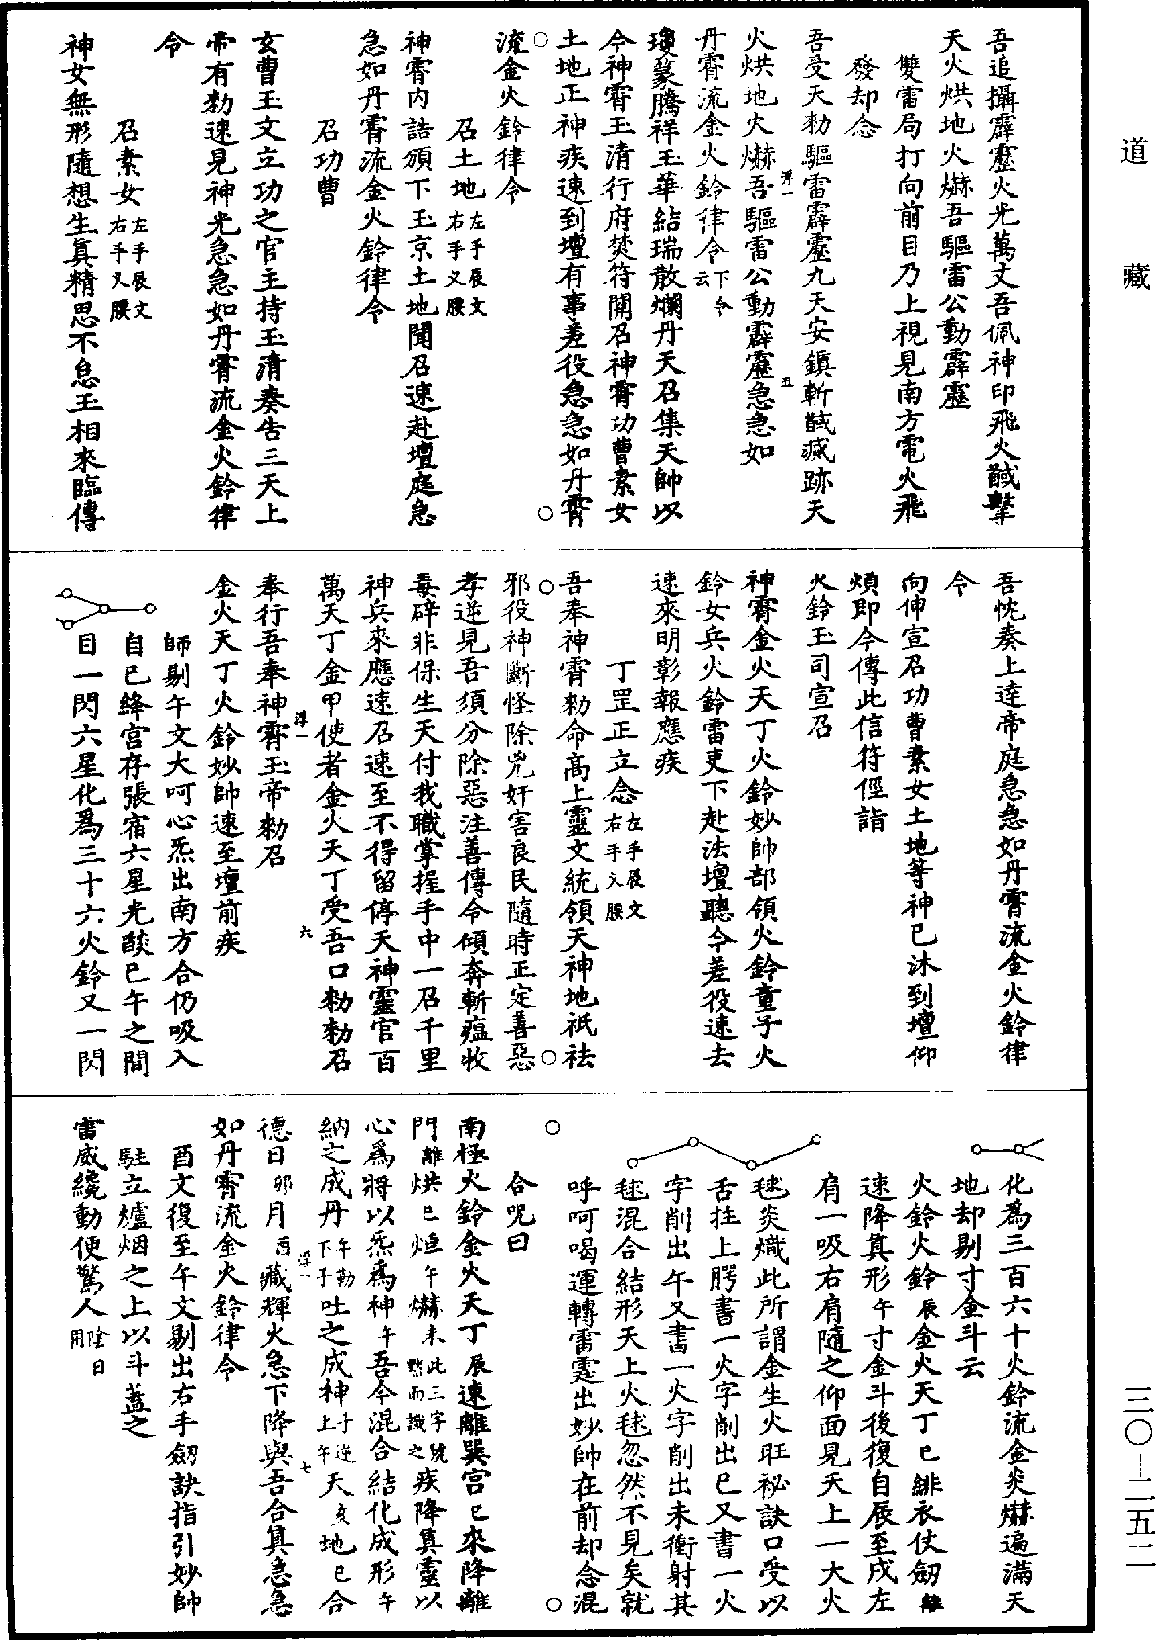 道藏
三〇-二五二
吾追攝霹靂火光萬丈吾佩神印飛火馘擊
天火烘地火爀吾驅雷公動霹靂
雙雷局打向前目乃上視見南方電火飛
發却念
吾受天勑驅雷霹靂九天安鎮斬馘滅跡天
火烘地火爀吾驅雷公動霹靂急急如
丹霄流金火鈴律令下令云
瓊篆騰祥玉華結瑞散爛丹天召集天帥以
今神霄玉清行府焚符開召神霄功曹素女
土地正神疾速到壇有事差役急急如丹霄
流金火鈴律令
召土地左手辰文右手叉腰
神霄內誥頒下玉京土地聞召速赴壇庭急
急如丹霄流金火鈴律令
召功曹
玄曹玉文立功之官主持玉清奏告三天上
帝有勑速見神光急急如丹霄流金火鈴律
令
召素女左手辰文右手叉腰
神女無形隨想生真精思不怠玉相來臨傳
吾忱奏上達帝庭急急如丹霄流金火鈴律
令
向伸宣召功曹素女土地等神已沐到壇仰
煩即今傳此信符徑詣
火鈴玉司宣召
神霄金火天丁火鈴妙帥部領火鈴童子火
鈴女兵火鈴雷吏下赴法壇聽令差役速去
速來明彰報應疾
丁罡正立念左手辰文右手叉腰
吾奉神霄勑命高上靈文統領天神地祇祛
邪役神斷怪除兇奸害良民隨時正定善惡
孝逆見吾須分除惡注善傳令傾奔斬瘟收
毒辟非保生天付我職掌握手中一召千里
神兵來應速召速至不得留停天神靈官百
萬天丁金甲使者金火天丁受吾口勑勑召
奉行吾奉神霄玉帝勑召
金火天丁火鈴妙帥速至壇前疾
師剔午文大呵心炁出南方合仍吸入
自己絳宮存張宿六星光燄巳午之間
目一閃六星化為三十六火鈴又一閃
化為三百六十火鈴流金炎爀遍滿天
地却剔寸金斗云
火鈴火鈴辰金火天丁巳緋衣仗劒離
速降真形午寸金斗後復自辰至戌左
肩一吸右肩隨之仰面見天上一大火
毬炎熾此所謂金生火旺祕訣口受以
舌拄上腭書一火字削出巳又書一火
字削出午又書一火字削出未衝射其
毬混合結形天上火毬忽然不見矣就
呼呵喝運轉雷霆出妙帥在前却念混
合咒曰
南極火鈴金火天丁辰速離巽宮巳來降離
門離烘巳烜午爀未此三字號黙而識之疾降真靈以
心為將以炁為神午吾今混合結化成形午
納之成丹午勒下子吐之成神子逆上午天亥地巳合
德日卯月酉藏輝火急下降與吾合真急急
如丹霄流金火鈴律令
酉文復至午文剔出右手劒訣指引妙帥
駐立爐烟之上以斗蓋之
雷威纔動便驚人陰日用